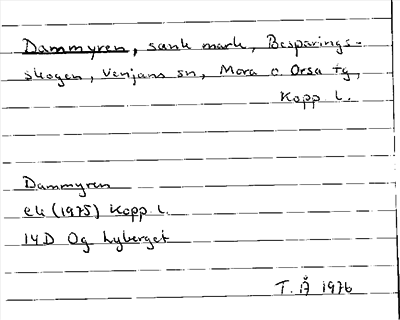 Dammyren, sank mark, Besparings-
skogen, Venjans sn, Mora o. Orsa tg,
Kopp l.
Dammyren
ek (1975) Kopp l.
14D Og Lyberget
T. Å 1976